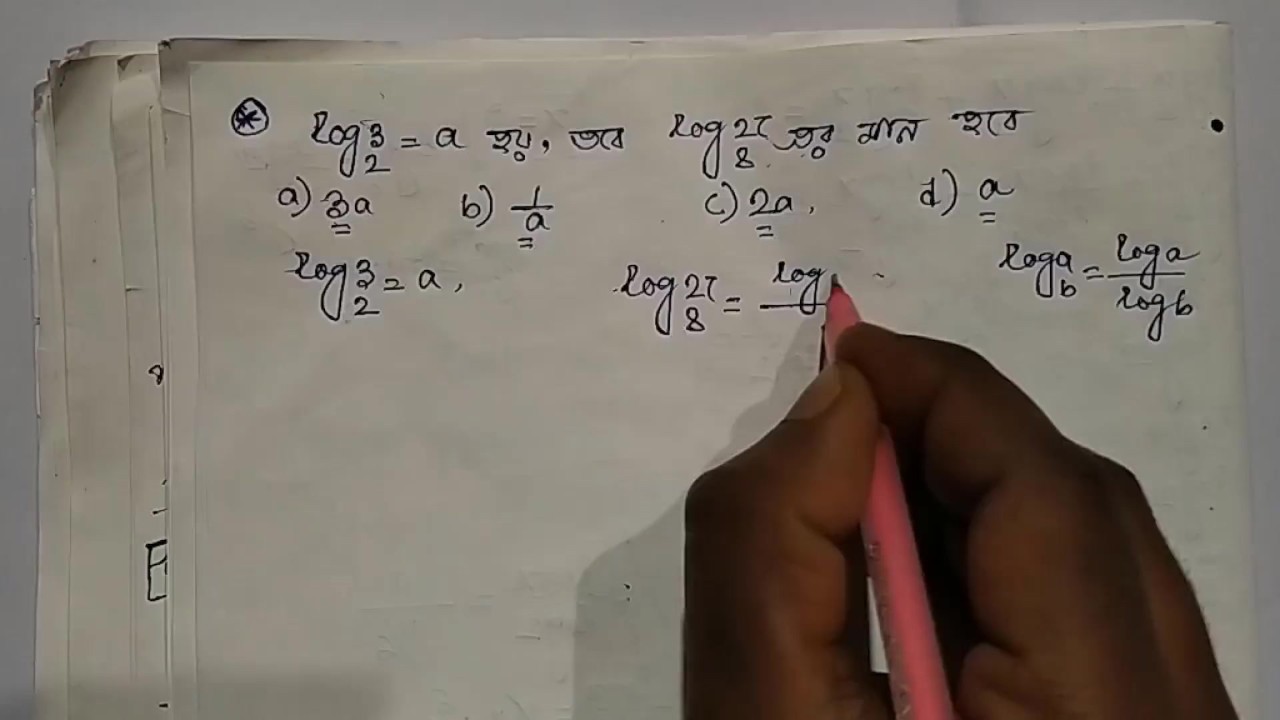 * log₂3 = a হয়, তবে log₈27 এর মান হবে
a) 3a b) 1/a c) 2a, d) a
log₂3 = a, log₈27 = log logₐb = log a / log b